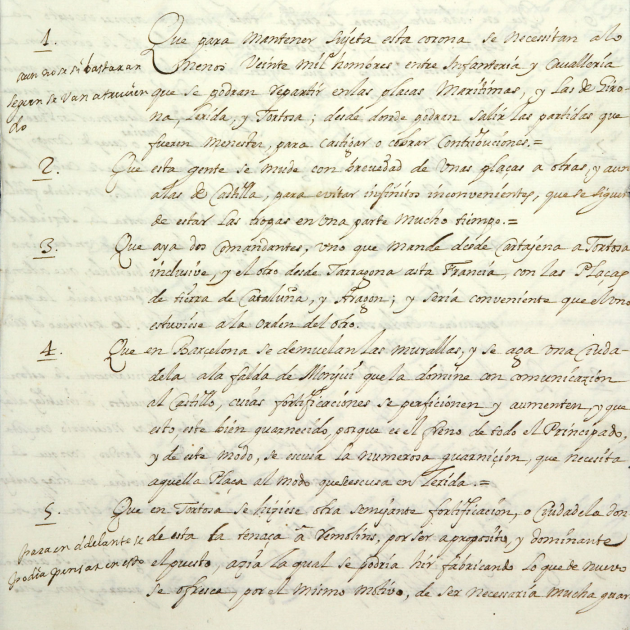 1. Que para mantener sujeta esta corona se necesitan a lo
menos Veinte mil hombres entre Infanteria y Cavalleria
aun no se si bastaran
segun se van atrevien
do
que se podran repartir en las placas Maritimas, y las de Giro-
na, Lerida, y Tortosa; desde donde podran salir las partidas que
fueren menester, para castigar o cobrar Contribuciones.=
2. Que esta gente se mude con brevedad de unas placas a otras, y aun
a las de Castilla, para evitar infinitos inconvenientes, que se siguen
de estar las tropas en una parte mucho tiempo.=
3. Que aya dos Comandantes, uno que mande desde Cartajena a Tortosa
inclusive, y el otro desde Tarragona asta Francia, con las Plaças
de tierra de Cataluña, y Aragon; y seria conveniente que el uno
estuviese a la orden del otro.
4. Que en Barcelona se demuelan las murallas, y se aga una Ciuda-
dela a la falda de Monjui que la domine con comunicazion
al Castillo, cuias fortificaciones se perficionen y aumenten, y que
esto este bien guarnecido, porque es el freno de todo el Principado,
y de este modo, se escusa la numerosa guarniçion, que necesita
aquella Plaça al modo que se escusa en Lerida.=
5. Que en Tortosa se hiçiese otra semejante fortificacion, o Ciudadela don-
de esta la tenaça â Remolins, por ser a proposito, y dominante
para en adelante se
podia pensar en esto
el puesto, azia la qual se podria hir fabricando lo que de nuevo
se ofresce, por el mismo motivo, de ser necessaria mucha guar